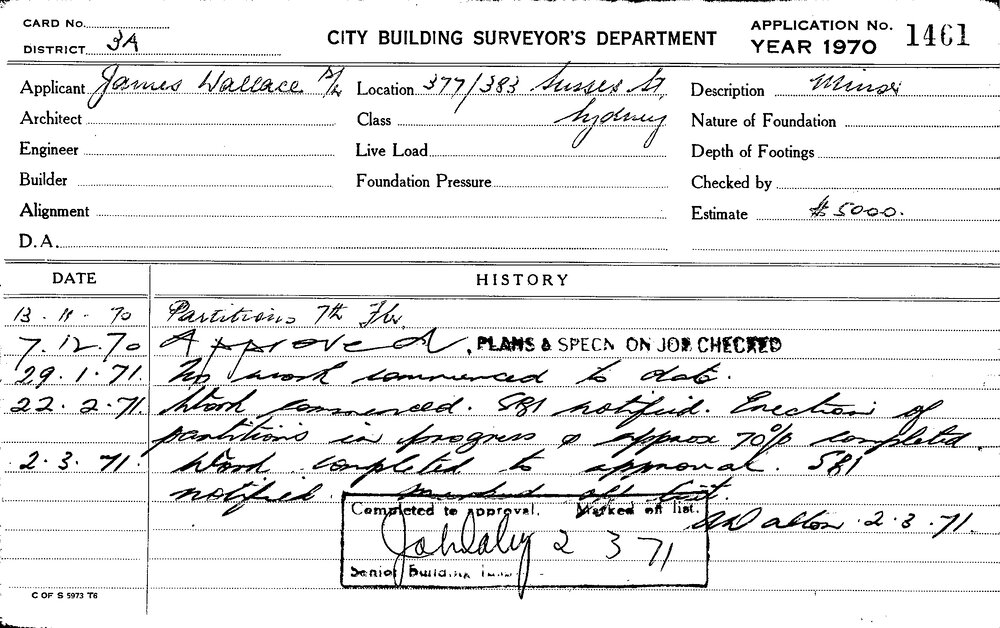 CARD No.
DISTRICT 3A
CITY BUILDING SURVEYOR'S DEPARTMENT
APPLICATION No. 1461
YEAR 1970
Applicant James Wallace P/L Location 377/383 Sussex St, Description Minor
Architect Class Sydney Nature of Foundation
Engineer Live Load Depth of Footings
Builder Foundation Pressure Checked by
Alignment Estimate $5000.
D.A.
DATE HISTORY
13.11.70 Partitions 7th Flr.
7.12.70 Approved, PLANS & SPECN ON JOB CHECKED
29.1.71. No work commenced to date.
22.2.71. Work commenced. SBI notified. Erection of
partitions in progress & approx 70% completed.
2.3.71. Work completed to approval. SBI
notified. Marked off list.
Completed to approval. Marked off list.
2.3.71.
John Daly 2 3 71
Senior Building
C OF S 5973 T6